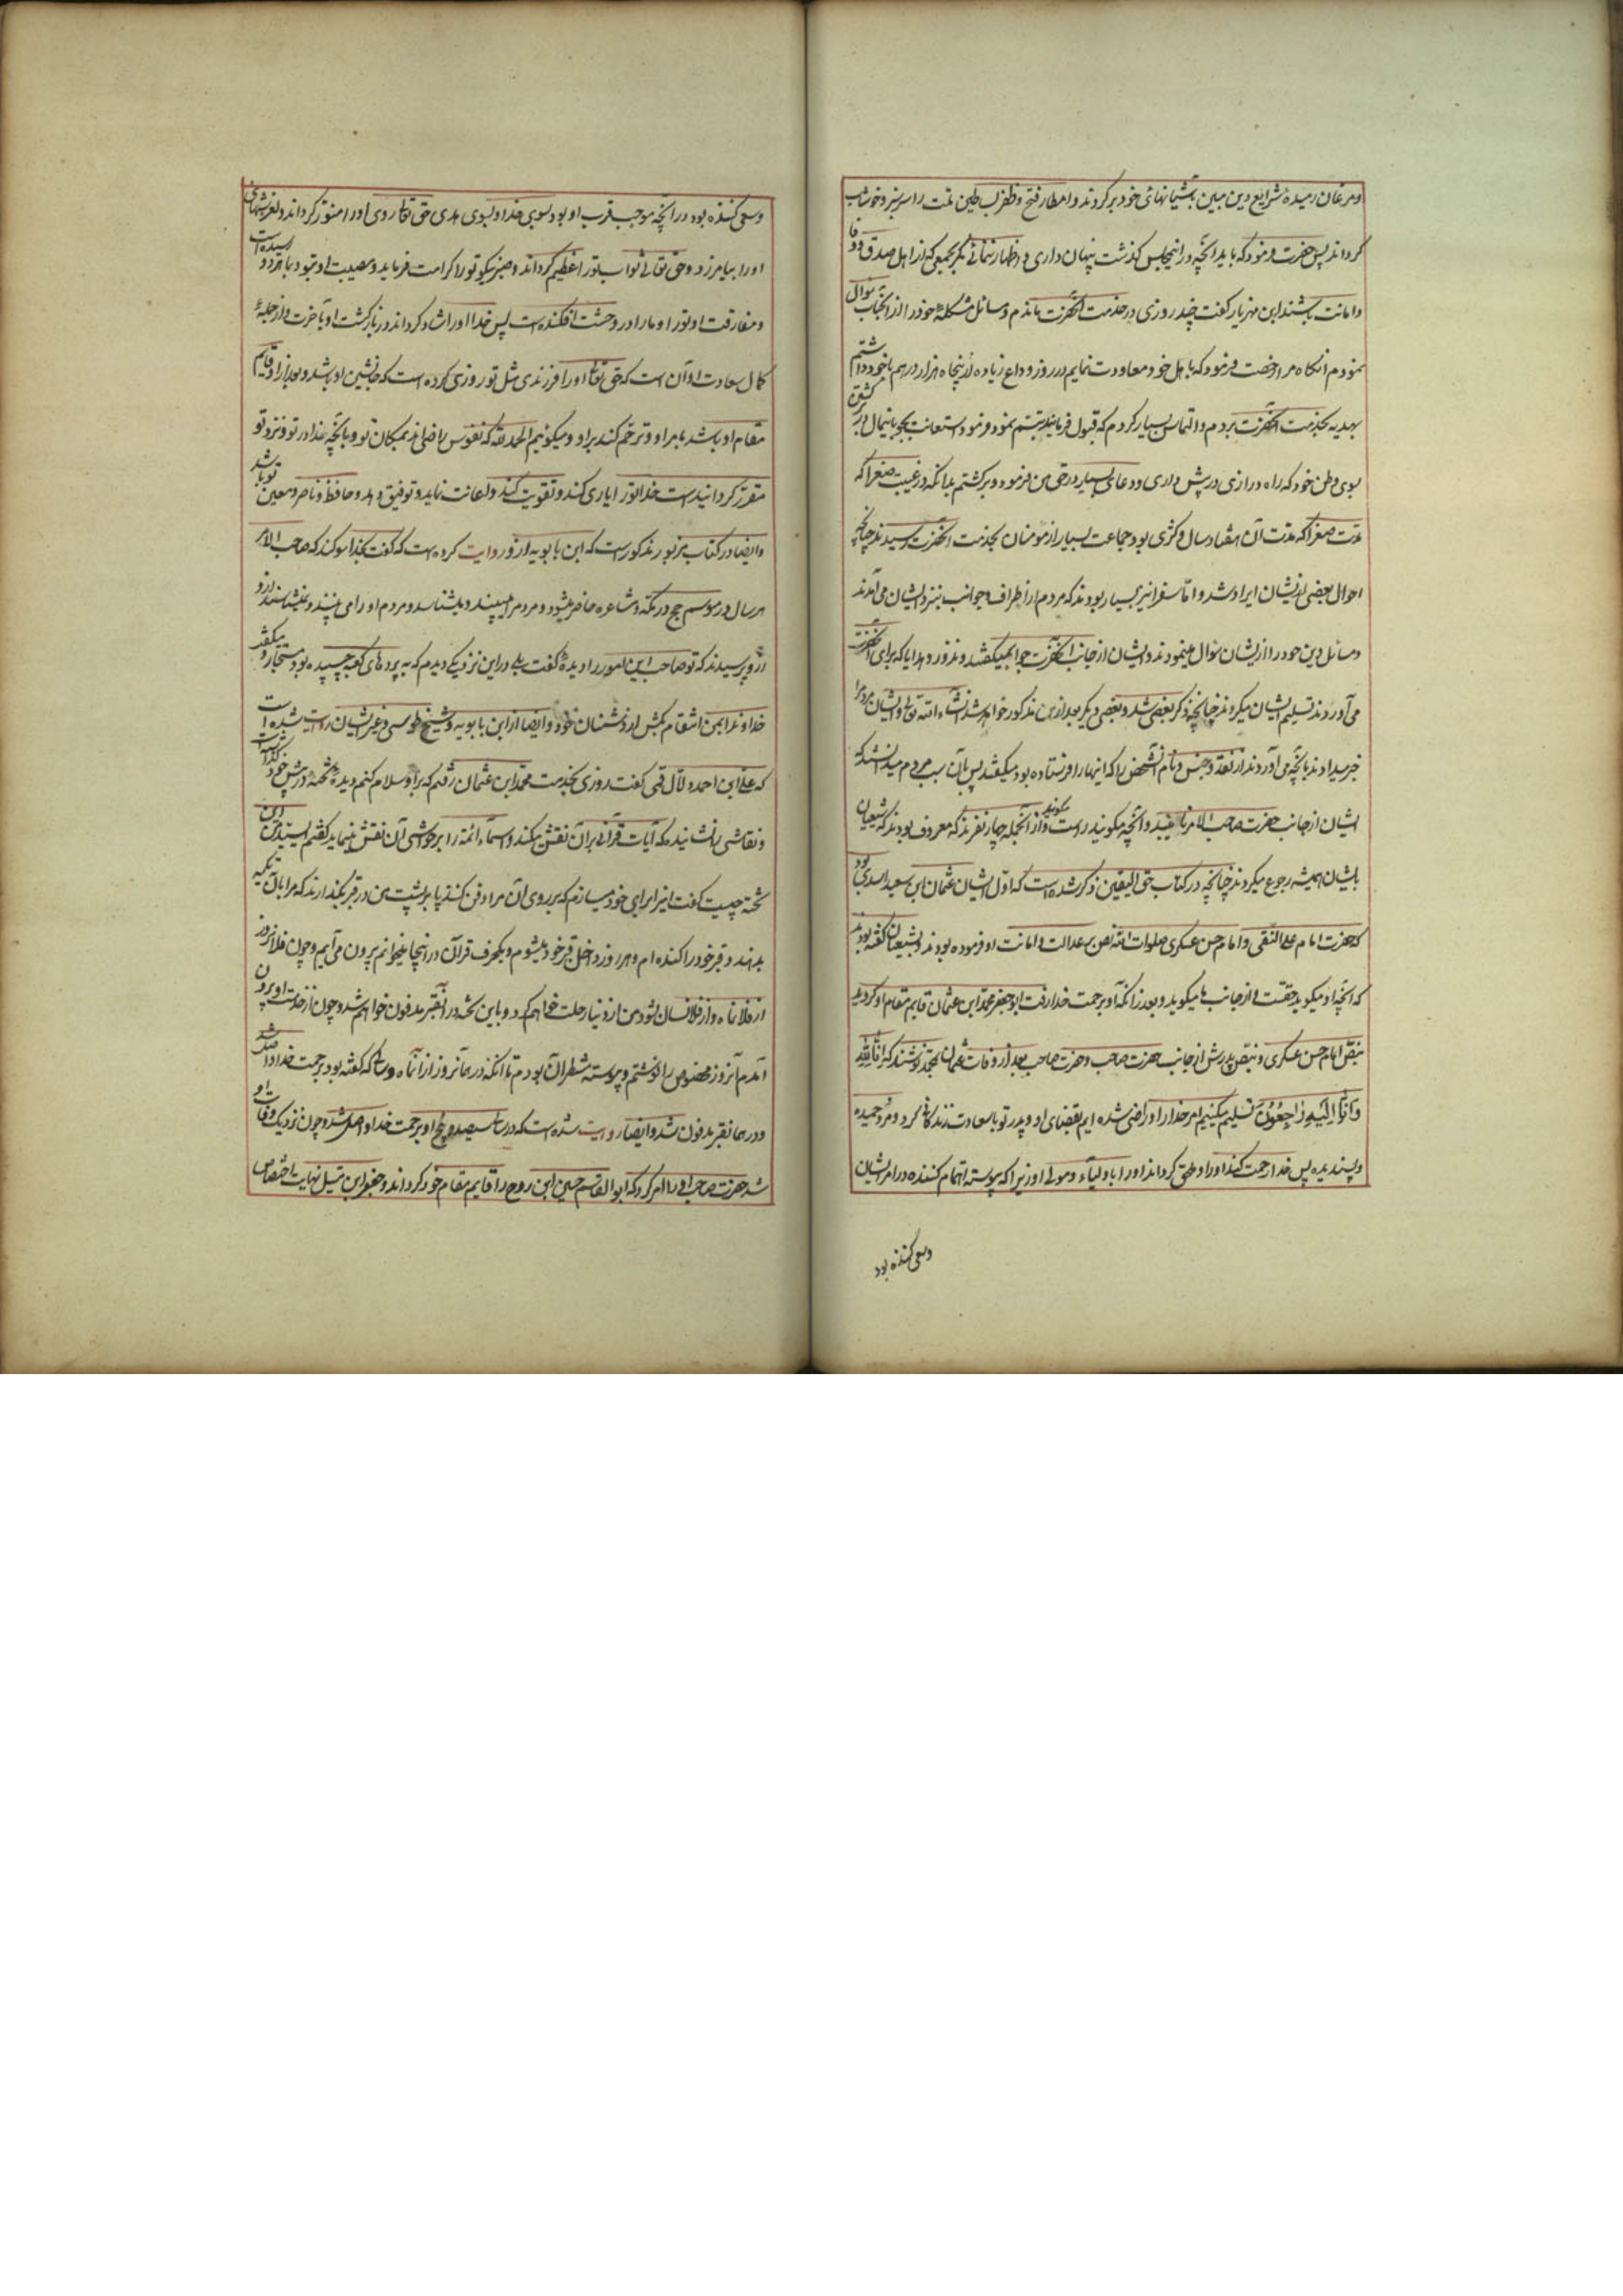 و مرغان رمیده شرایع دین مبین بآشیانهای خود برکردند و امطار فتح و ظفر لب طین ملت را سرسبز و خوشاب
کرداند پس حضرت فرمود که باید آنچه در اینمجلس کذشت پنهان داری و اظهار ننمائی مکر بجمعی که از اهل صدق و وفا
و امانت باشند ابن مهزیار کفت چند روزی در خدمت آنحضرت ماندم و مسائل مشکلهٔ خود را از آنجناب سؤال
نمودم آنکاه مرا رخصت فرمود که باهل خود معاودت نمایم در روز وداع زیاده از پنجاه هزار درهم باخود داشتم
بهدیه بخدمت آنحضرت بردم و التماس بسیار کردم که قبول فرمایند تبسم نمود و فرمود استعانت بجو باینمال در برکشتن
بسوی وطن خود که راه درازی در پیش داری و دعای بسیار در حق من فرمود و برکشتم بدانکه در غیبت صغرا که
مدت صغرا که مدت آن هفتاد سال و کثری بود جماعت بسیار از مومنان بخدمت آنحضرت رسیدند چنانچه
احوال بعضی از ایشان ایراد شد و اما سفرا نیز بسیار بودند که مردم از اطراف و جوانب بنزد ایشان می آمدند
و مسائل دین خود را از ایشان سؤال مینمودند و ایشان از جانب آنحضرت جواب میکفتند و نذور و هدایا که برای آنحضرت
می آوردند تسلیم ایشان میکردند چنانچه ذکر بعضی شد و بعضی دیکر بعد ازین مذکور خواهد شد انشاء الله تعالی و ایشان مردم را
خبر میدادند بآنچه می آوردند از نقد و جنس و نام آنشخص را که اینها را فرستاده بود میکفتند پس بآن سبب مردم میدانستند که
ایشان از جانب حضرت صاحب الامر نایبند و آنچه میکویند راست میکویند و از آنجمله چهار نفرند که معروف بودند که شیعیان
بایشان همیشه رجوع میکردند چنانچه در کتاب حق الیقین ذکر شده است که اول ایشان عثمان ابن سعید اسدی بود
که حضرت امام علی النقی و امام حسن عسکری صلوات الله نص بر عدالت و امانت او فرموده بودند و بشیعیان کفته بودند
که آنچه او میکوید حقست و از جانب ما میکوید و بعد از آنکه او برحمت خدا رفت ابو جعفر محمد ابن عثمان قایم مقام او کردید
بنص امام حسن عسکری و بنص پدرش از جانب حضرت صاحب و حضرت صاحب بعد از وفات عثمان بمحمد نوشتند که اِنّا لِلّهِ
وَاِنّا اِلَیهِ رٰاجِعُونَ تسلیم میکنیم امر خدا را و راضی شده ایم بقضای او و پدر تو باسعادت زندکانی کرد و مرد حمیده
و پسندیده پس خدا رحمت کند او را و ملحق کرداند او را باولیاء و موالی او زیرا که پیوسته اهتمام کننده در امر ایشان
و سعی کننده بود
و سعی کننده بود در آنچه موجب قرب او بود بسوی خدا و بسوی هدی حق تعالی روی او را منور کرداند و لغزشهای
او را بیامرزد و حق تعالی ثواب تو را عظیم کرداند و صبر نیکو تو را کرامت فرماید و مصیبت او بتو و بما هر دو رسیده است
و مفارقت او تو را و ما را در وحشت افکنده است پس خدا او را شاد کرداند در بازکشت او بآخرت و از جملهٔ
کمال سعادت او آن است که حق تعالی او را فرزندی مثل تو روزی کرده است که جانشین او باشد و بعد از او قایم
مقام او باشد بامر او و ترحم کند بر او و میکوئیم الحمد لله که نفوس راضی اند بمکان تو و بآنچه خدا در تو و نزد تو
مقرر کردانیده است خدا تو را یاری کند و تقویت کند و اعانت نماید و توفیق دهد و حافظ و ناصر و معین تو باشد
و ایضا در کتاب مزبور مذکور است که ابن بابویه از او روایت کرده است که کفت بخدا سوکند که صاحب الامر
هر سال در موسم حج در مکه و مشاعره حاضر میشود و مردم را میبیند و میشناسد و مردم او را می بینند و نمیشناسند از او
از او پرسیدند که تو صاحب این امور را دیدهٔ کفت بلی در این نزدیکی دیدم که به پردهای کعبه چسپیده بود و مستجار و میکفت
خداوندا بمن انتقام بکش از دشمنان خود و ایضا از ابن بابویه و شیخ طوسی و غیر ایشان روایت شده است
که علی ابن احمد دلال قمی کفت روزی بخدمت محمد ابن عثمان رفتم که بر او سلام کنم دیدم تخته در پیش خود کذاشته است
و نقاشی را نشانیده که آیات قرآنی بر آن نقش میکند و اسماء ائمه را بر حواشی آن نقش مینماید کفتم ای سید من این
تخته چیست کفت اینرا برای خود میسازم که بر روی آن مرا دفن کنند یا بر پشت من در قبر بکذارند که مرا بآن تکیه
بدهند و قبر خود را کنده ام و هر روز داخل قبر خود میشوم و یکحرف قرآن در آنجا میخوانم بیرون می آیم و چون فلان روز
از فلان ماه و از فلان سال شود من از دنیا رحلت خواهم کرد و با این تخته در آنقبر مدفون خواهم شد و چون از خدمت او بیرون
آمدم آنروز مخصوص را نوشتم و پیوسته منتظر آن بودم تا آنکه در همان روز از آنماه و سال که کفته بود برحمت خدا واصل شد
و در همان قبر مدفون شد و ایضا روایت شده است که در سال سیصد و پنج او برحمت خدا واصل شد و چون نزدیک وفات او
شد حضرت صاحب او را امر کرد که ابو القاسم حسین ابن روح را قایم مقام خود کرداند و جعفر ابن متیل نهایت اختصاص